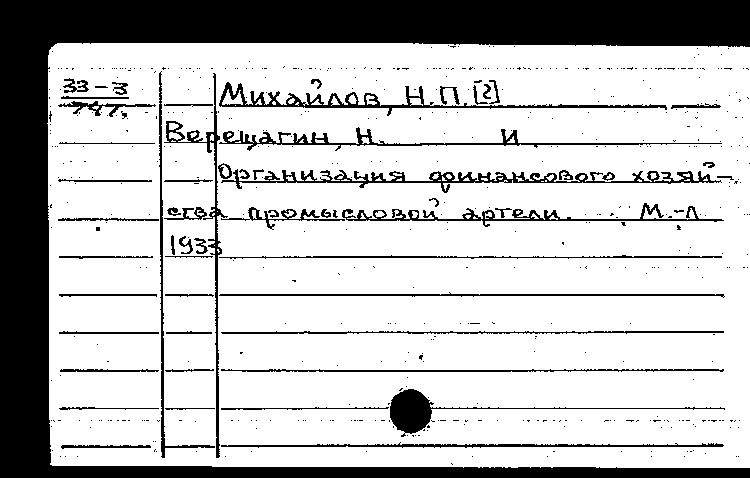 33-3
747.
Михайлов, Н.П.[2]
Верещагин, Н. И.
Организация финансового хозяй-
ства промысловой артели. М.-Л
1933